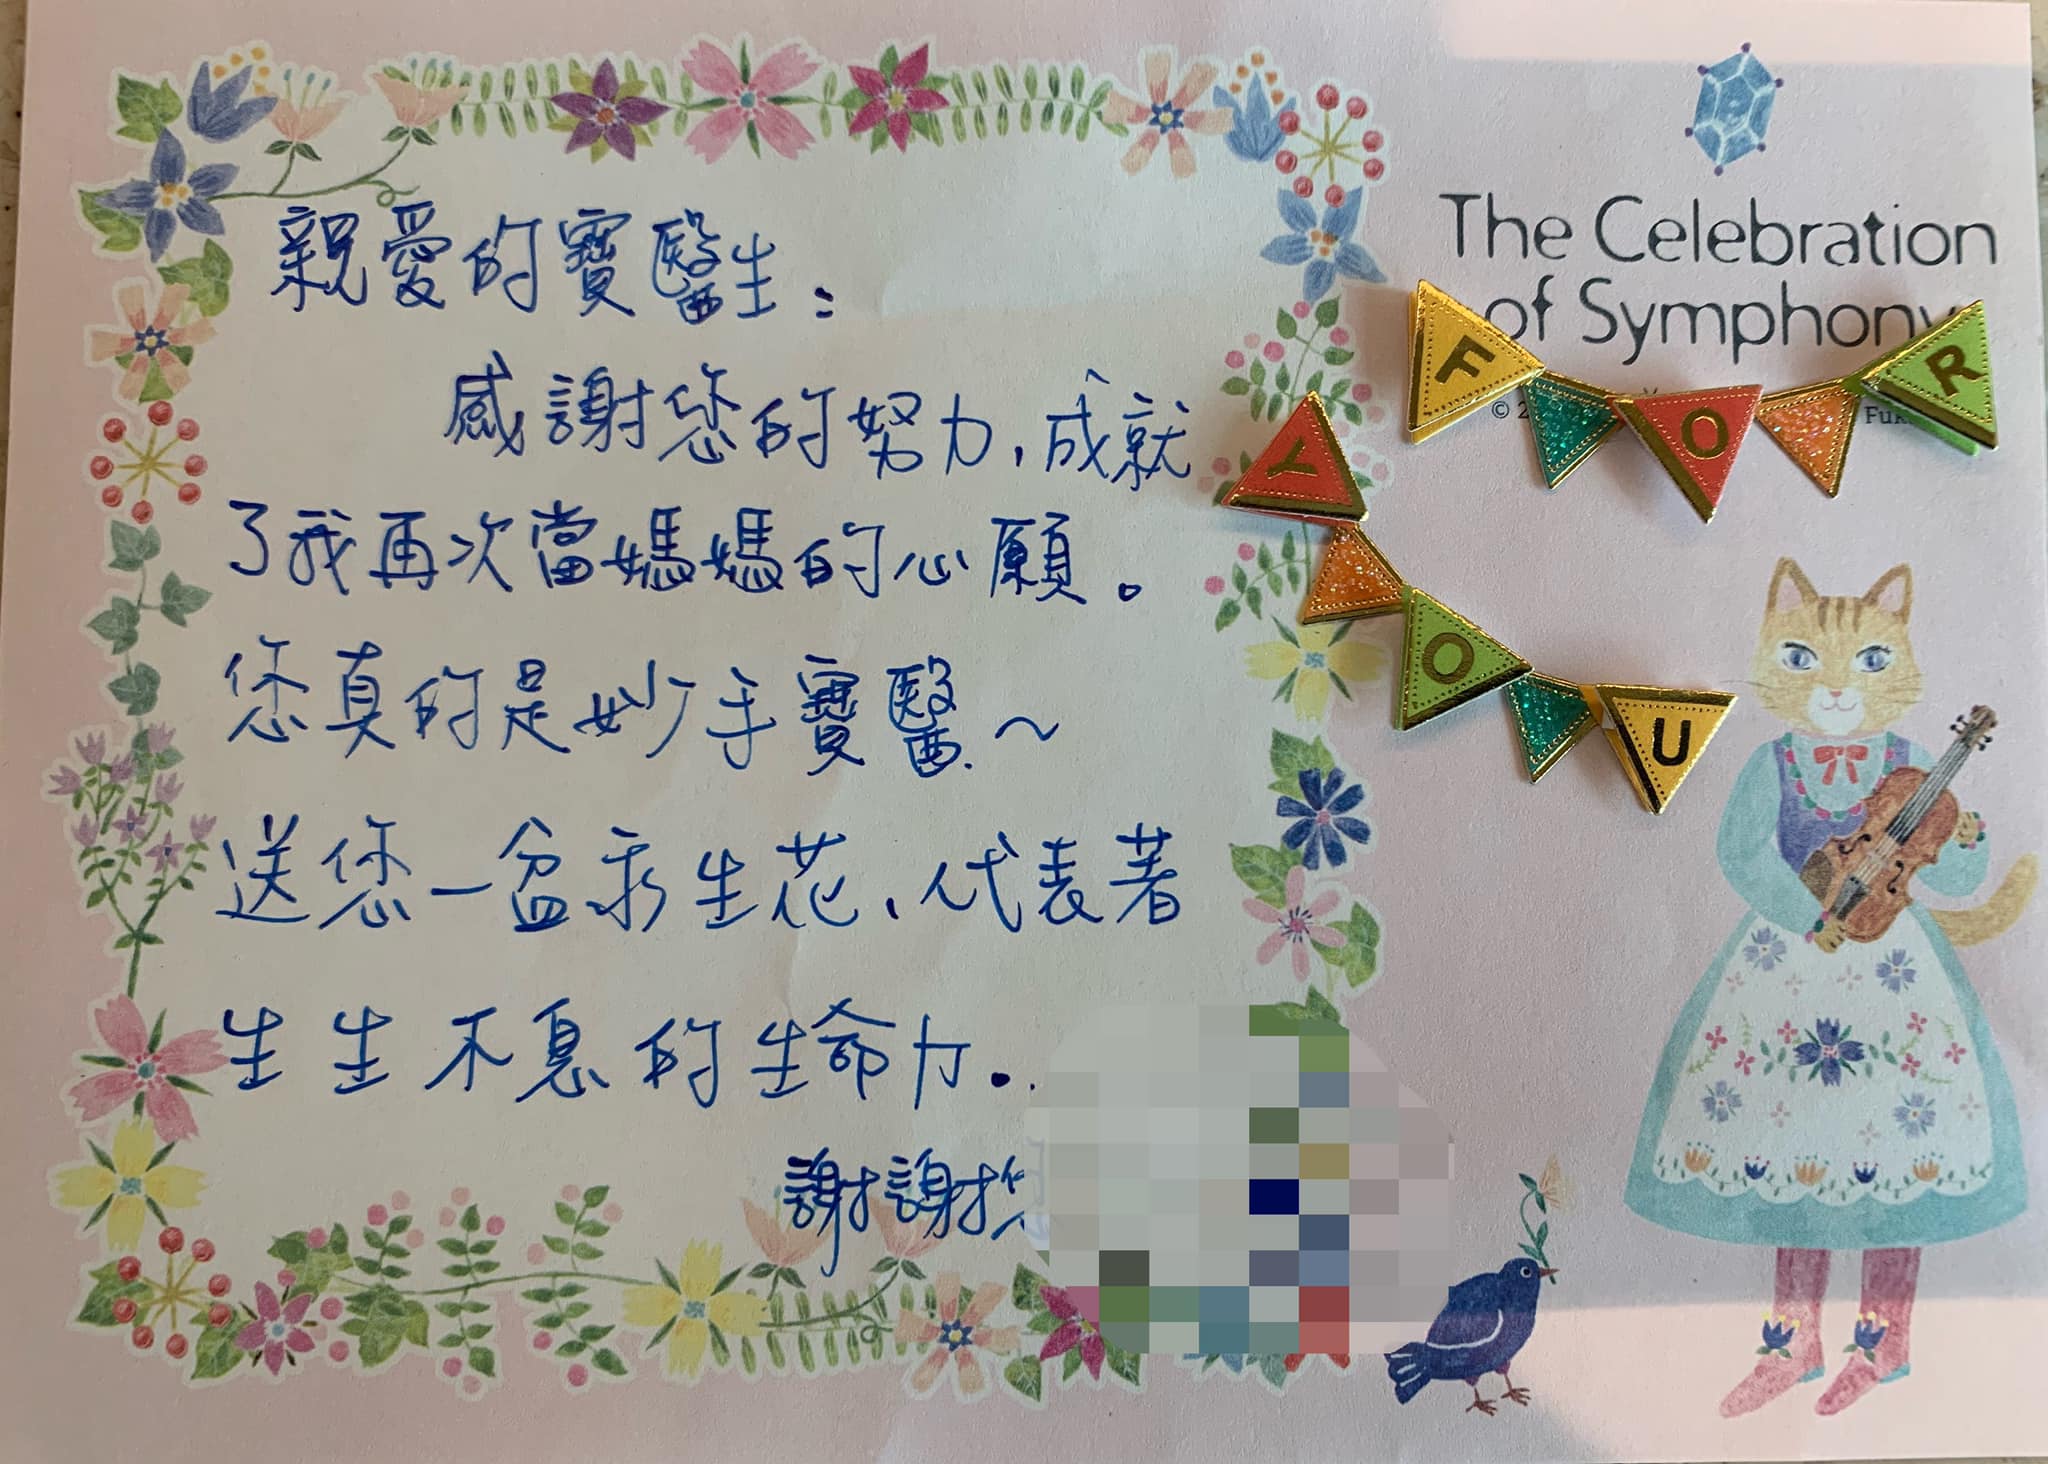 親愛的寶醫生：
感謝您的努力，成就
了我再次當媽媽的心願。
您真的是妙手寶醫～
送您一盆永生花、代表著
生生不息的生命力。
謝謝您
The Celebration
of Symphony
FOR
YOU